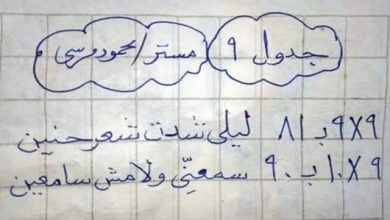 جدول ٩ مستر/محمود مرسى
٩x٩ بـ ٨١ ليلى شدت شعر حنين
٩x١٠ بـ ٩٠ سمعنِّى ولا مش سامعين